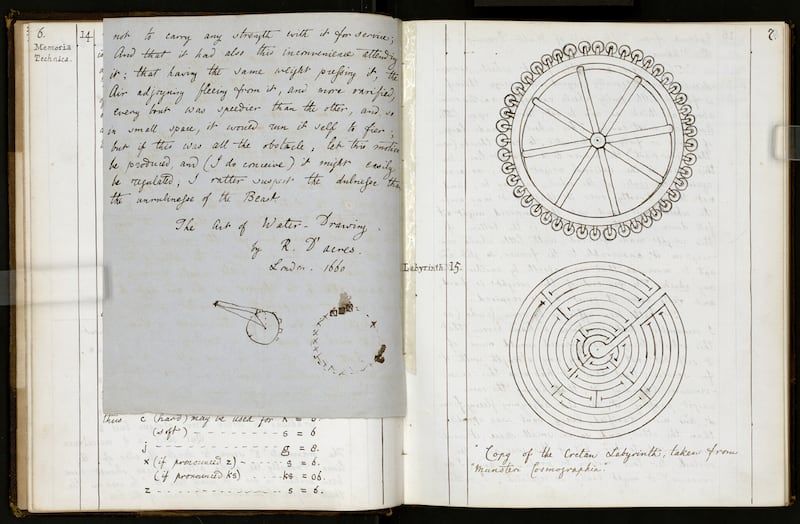 6.
Memoria
Technica.
14
not to carry any strength with it for service;
And that it had also this inconvenience attending
it; that having the same weight pressing it, the
Air adjoyning fleeing from it, and more rarified,
every bout was speedier than the other, and so
in small space, it would run it self to fier;
but if this was all the obstacle, let this motion
be produced, and (I do conceive) it might easily
be regulated; I rather suspect the dulnesse than
the unrulinesse of the Beast.
The Art of Water-Drawing.
by R. D'acres.
London. 1660
thus c (hard) may be used for k = 8.
(soft) s = 6.
j g = 8.
x (if pronounced z) s = 6.
(if pronounced ks) ks = 06.
z s = 6.
7.
Labyrinth. 15.
Copy of the Cretan Labyrinth, taken from
"Munsteri Cosmographia."